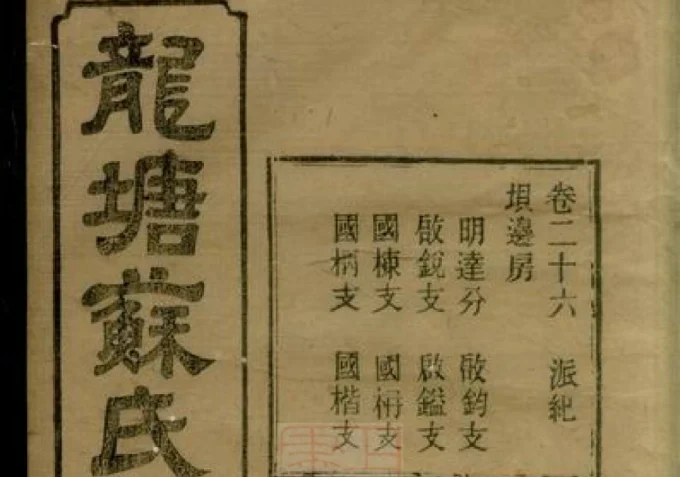 卷二十六 派紀
垻邊房
明達分 啟鈞支
啟銳支 啟鑑支
國棟支 國枏支
國柄支 國楷支
龍塘蘇氏